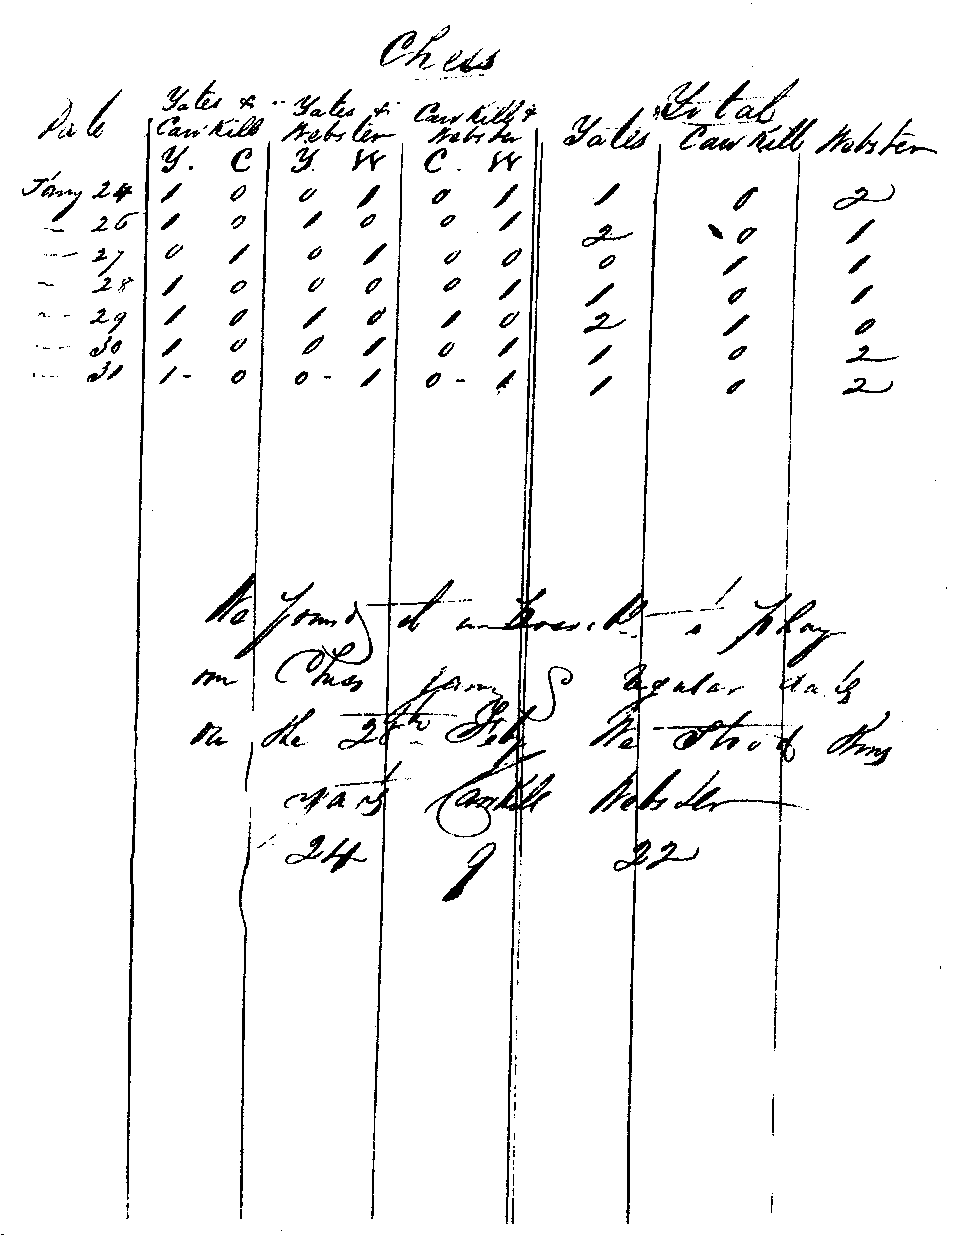 Chess
Date Yates & CawKill Yates & Webster CawKill & Webster Total
Yates CawKill Webster
Y. C Y. W C. W
Jany 24 1 0 0 1 0 1 1 0 2
" 26 1 0 1 0 0 1 2 0 1
" 27 0 1 0 1 0 0 0 1 1
" 28 1 0 0 0 0 1 1 0 1
" 29 1 0 1 0 1 0 2 1 0
" 30 1 0 0 1 0 1 1 0 2
" 31 1 - 0 0 - 1 0 - 1 1 0 2
We found it to play
our Chess games regular daily
on the 28th Feby We Stood thus
Yates Cawkill Webster
24 9 22